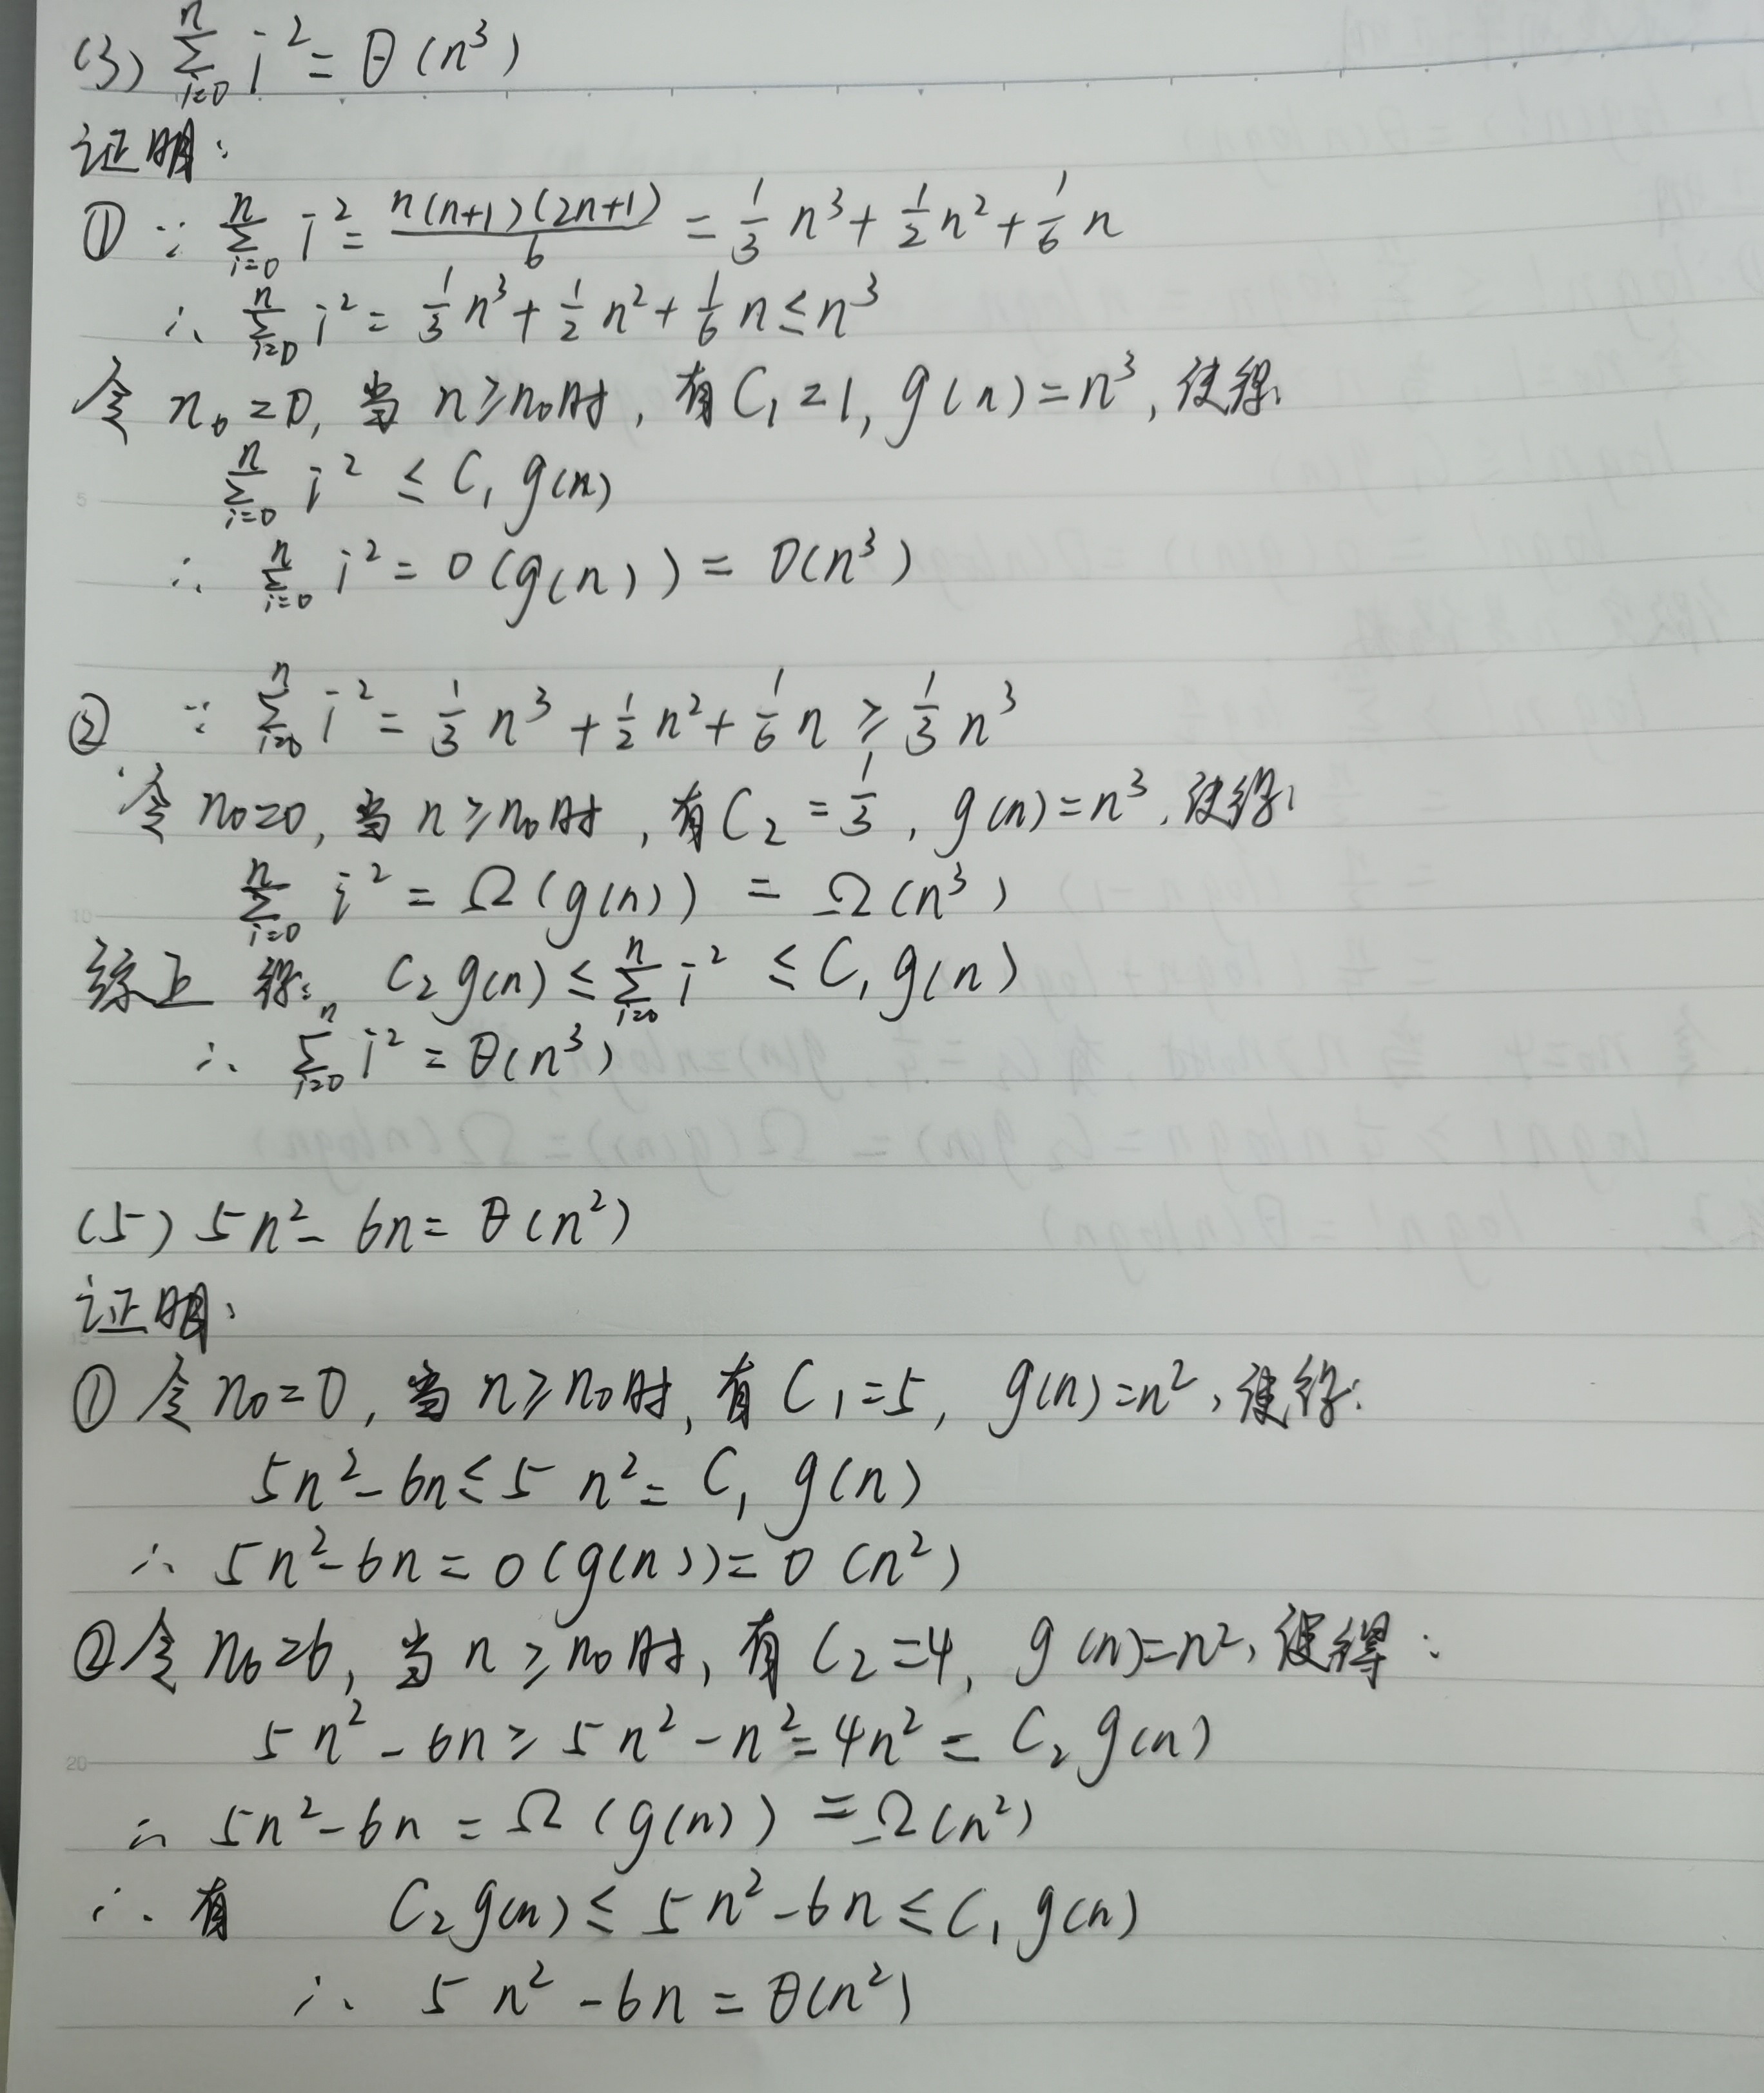 (3) ∑_{i=0}^{n} i² = θ(n³)
证明:
① ∵ ∑_{i=0}^{n} i² = n(n+1)(2n+1)/6 = 1/3 n³ + 1/2 n² + 1/6 n
∴ ∑_{i=0}^{n} i² = 1/3 n³ + 1/2 n² + 1/6 n ≤ n³
令 n₀=0, 当 n≥n₀时, 有 C₁=1, g(n)=n³, 使得:
∑_{i=0}^{n} i² ≤ C₁ g(n)
∴ ∑_{i=0}^{n} i² = O(g(n)) = O(n³)
② ∵ ∑_{i=0}^{n} i² = 1/3 n³ + 1/2 n² + 1/6 n ≥ 1/3 n³
令 n₀=0, 当 n≥n₀时, 有 C₂=1/3, g(n)=n³, 使得:
∑_{i=0}^{n} i² = Ω(g(n)) = Ω(n³)
综上 得: C₂g(n) ≤ ∑_{i=0}^{n} i² ≤ C₁g(n)
∴ ∑_{i=0}^{n} i² = θ(n³)
(5) 5n² - 6n = θ(n²)
证明:
① 令 n₀=0, 当 n≥n₀时, 有 C₁=5, g(n)=n², 使得:
5n² - 6n ≤ 5n² = C₁ g(n)
∴ 5n² - 6n = O(g(n)) = O(n²)
② 令 n₀=6, 当 n≥n₀时, 有 C₂=4, g(n)=n², 使得:
5n² - 6n ≥ 5n² - n² = 4n² = C₂ g(n)
∴ 5n² - 6n = Ω(g(n)) = Ω(n²)
∴ 有 C₂g(n) ≤ 5n² - 6n ≤ C₁ g(n)
∴ 5n² - 6n = θ(n²)